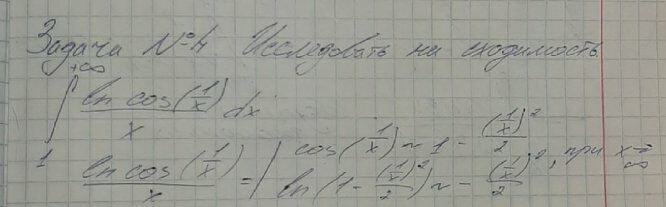 Задача №4 Исследовать на сходимость
+∞
∫ ln cos(1/x)/x dx
1
ln cos(1/x)/x = | cos(1/x) ~ 1 - (1/x)²/2
ln(1 - (1/x)²/2) ~ - (1/x)²/2, при x→∞